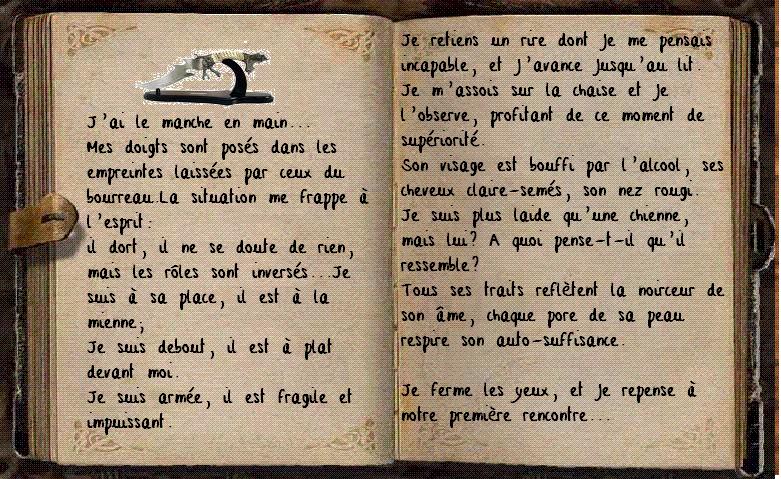 J'ai le manche en main...
Mes doigts sont posés dans les
empreintes laissées par ceux du
bourreau.La situation me frappe à
l'esprit:
il dort, il ne se doute de rien,
mais les rôles sont inversés...Je
suis à sa place, il est à la
mienne;
Je suis debout, il est à plat
devant moi.
Je suis armée, il est fragile et
impuissant.
Je retiens un rire dont je me pensais
incapable, et j'avance jusqu'au lit.
Je m'assois sur la chaise et je
l'observe, profitant de ce moment de
supériorité.
Son visage est bouffi par l'alcool, ses
cheveux claire-semés, son nez rougi.
Je suis plus laide qu'une chienne,
mais lui? A quoi pense-t-il qu'il
ressemble?
Tous ses traits reflètent la noirceur de
son âme, chaque pore de sa peau
respire son auto-suffisance.
Je ferme les yeux, et je repense à
notre première rencontre...